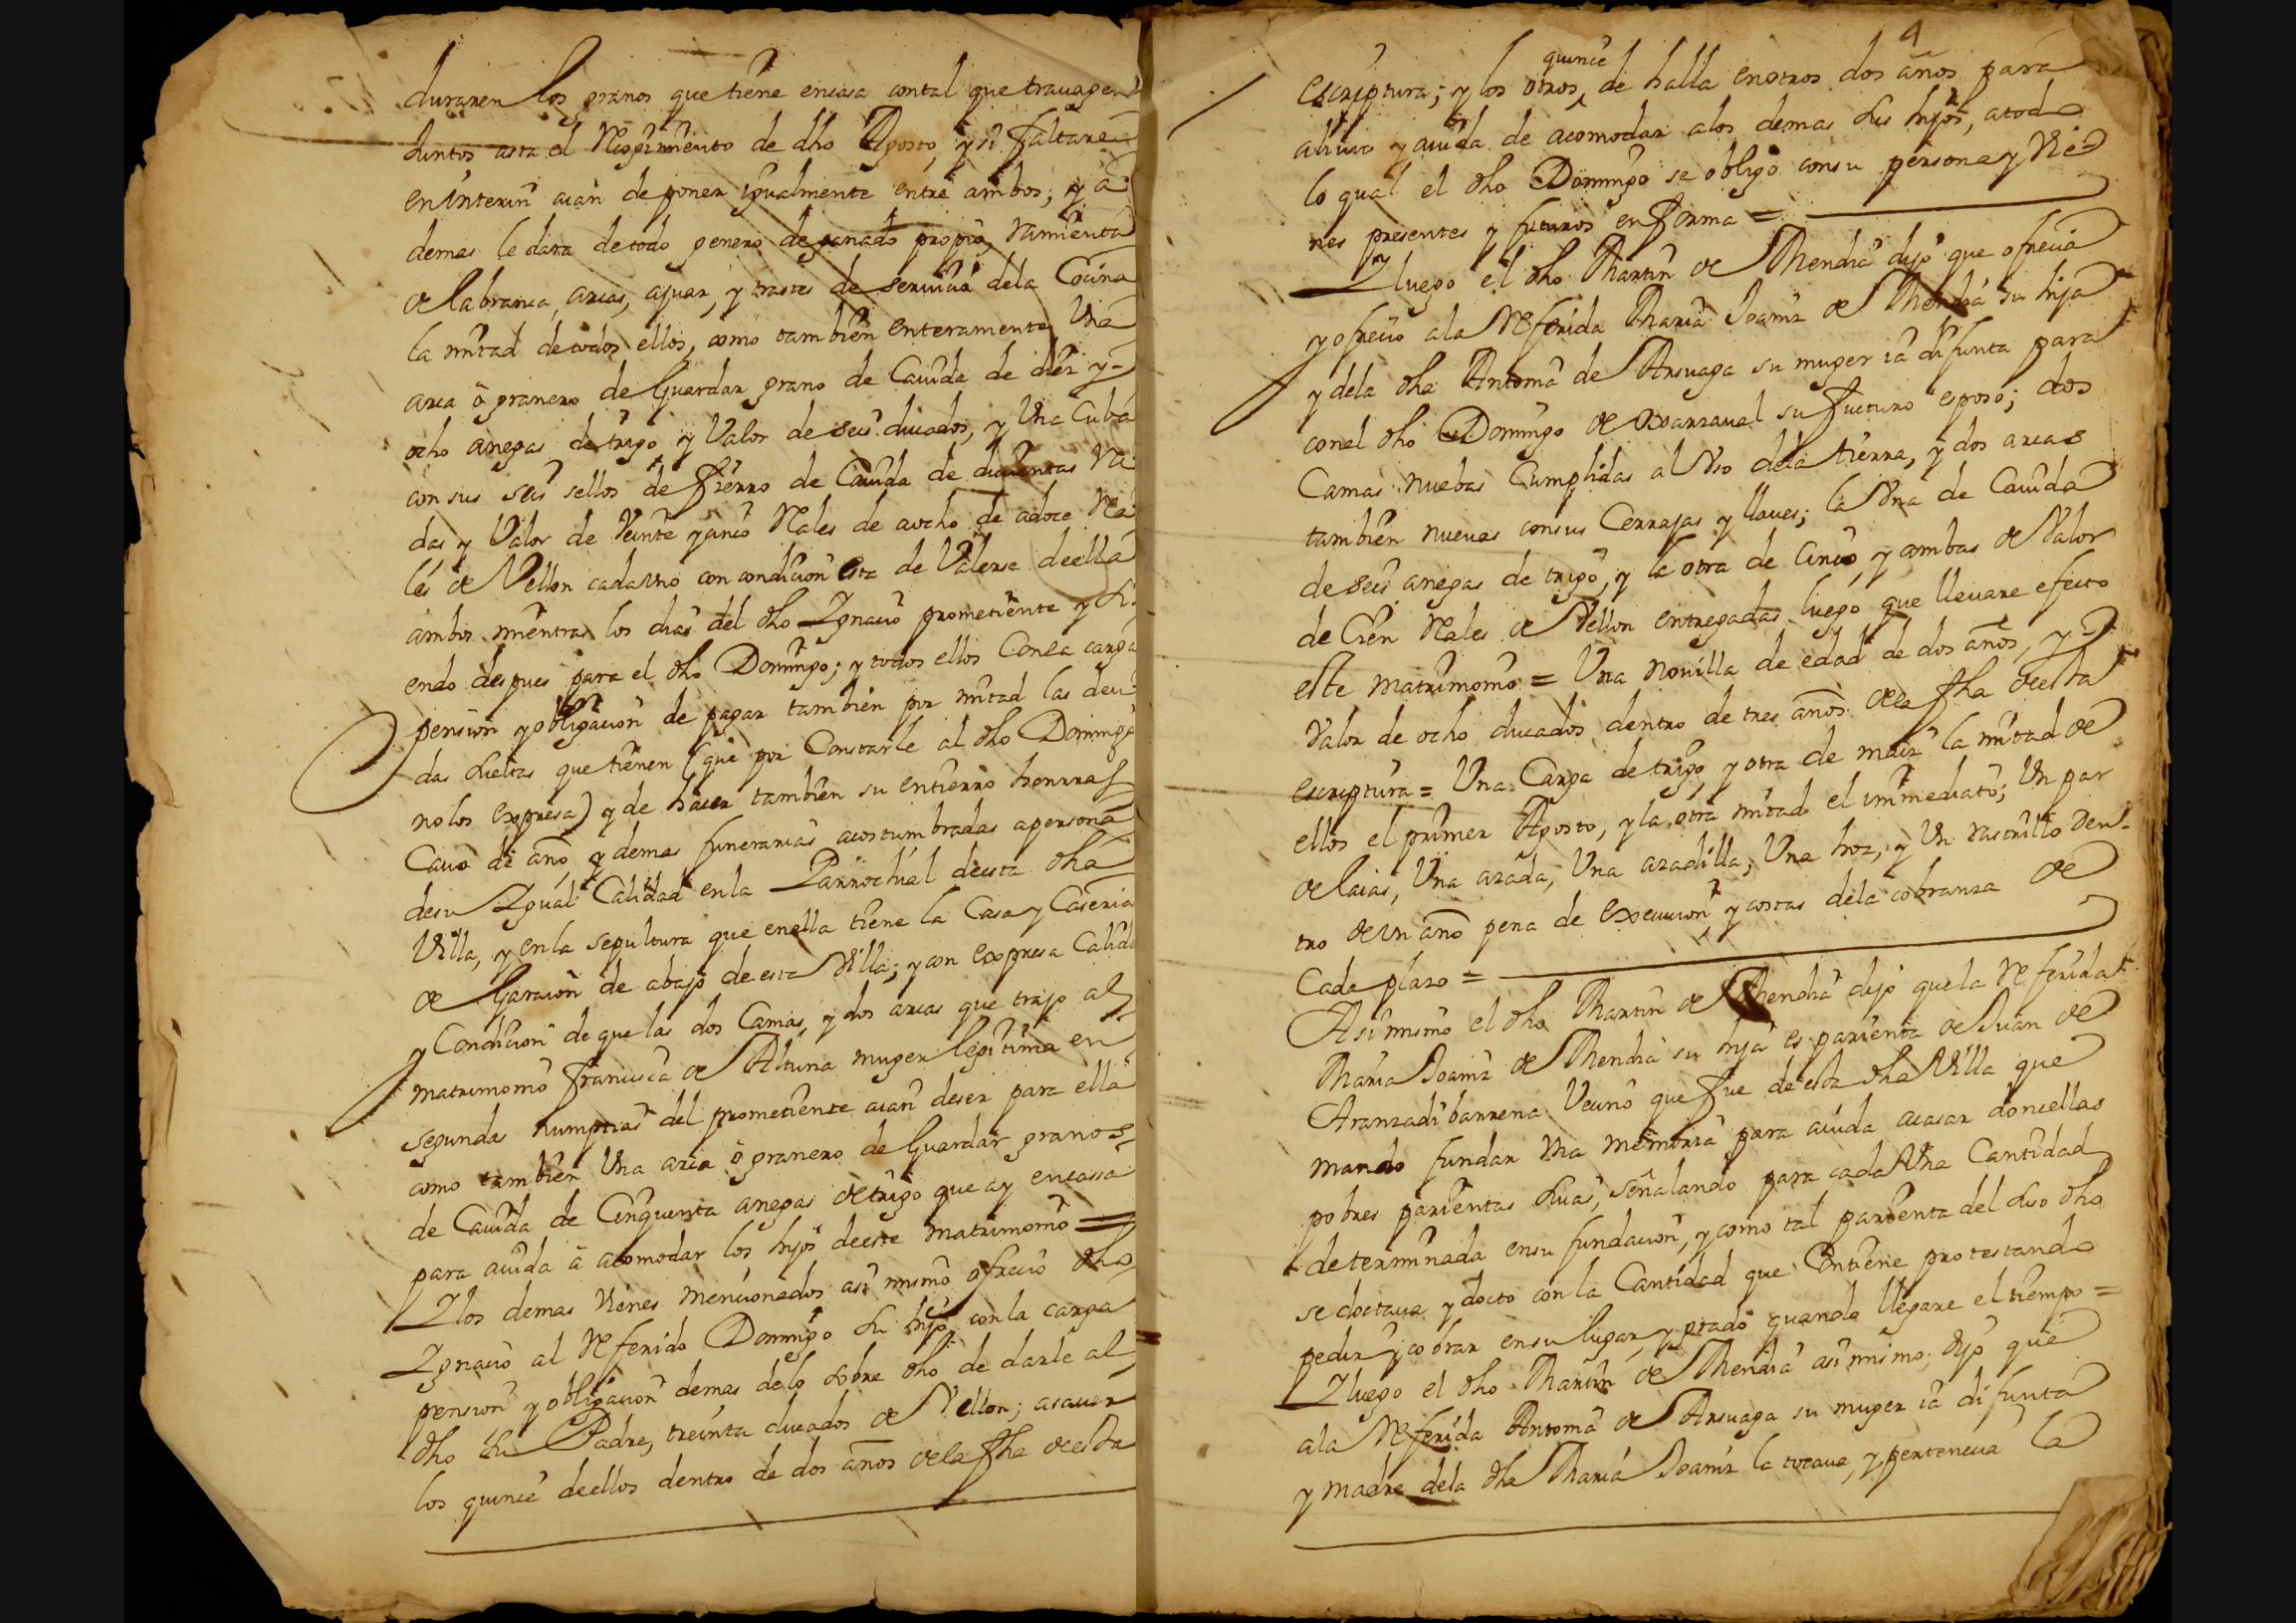 duraren los granos que tiene encasa contal que trauagen
Juntos asta el Recogimiento de dho Agosto, y si faltare
eninterin aian de poner igualmente entre ambos; y a
demas le dara de todo genero de ganado propio, ramienta
de labranca, arcas, ajuar, y trastes de seruicio dela Cocina
la mitad de todos ellos, como tambien enteramente Una
arca ò granero de Guardar grano de Cauida de diez y
ocho anegas de trigo y Valor de seis ducados, y Una Cuba
con sus seis sellos de fierro de Cauida de ducientas Ra
das y Valor de Veinte y cinco Rales de aocho de adoce Rea
les de Vellon cadavno con condicion esta de Valerse deella
ambos mientras los dias del dho Ignacio prometiente y Si
endo despues para el dho Domingo; y todos ellos Conla carga
pension y obligacion de pagar tambien por mitad las deu
das sueltas que tienen (que por Constarle al dho Domingo
no los expresa) y de hacer tambien su entierro honrras
Cauo de año, y demas funerarias acostumbradas apersona
desu Igual Calidad enla Parrochial deesta dha
Villa, y enla sepultura que enella tiene la Casa y Caseria
de Garacion de abajo de esta Villa; y con expresa Calida
y Condicion de que las dos Camas, y dos arcas que trajo al
matrimonio francisca de Altuna muger legitima en
segundas numptias del prometiente aian deser para ella
como tambien Una arca ò granero de Guardar granos
de Cauida de Cinquenta anegas de trigo que ay encassa
para auida à acomodar los hijos deeste matrimonio =
I los demas vienes mencionados asi mismo ofrecio dho
Ignacio al Referido Domingo su hijo con la carga
pension y obligacion demas delo sobre dho de darle al
dho su Padre, treinta ducados de Vellon; asauer
los quince deellos dentro de dos años dela fha deesta
4
quince
escriptura; y los otros de halla enotros dos años para
aliuio y auida de acomodar alos demas sus hijos, atodo
lo qual el dho Domingo se obligo consu persona y Vie
nes presentes y futuros enforma =
I luego el dho Martin de Mendia dijo que ofrecia
y ofrecio ala Referida Maria Joaniz de Mendia su hija
y dela dha Antonia de Arsuaga su muger ia difunta para
conel dho Domingo de su futuro esposo; dos
Camas nuebas Cumplidas al Vso dela tierra, y dos arcas
tambien nueuas consus Cerrajas y llaues; la Vna de Cauida
de seis anegas de trigo, y la otra de Cinco, y ambas de Valor
de Cien Rales de Vellon entregadas luego que lleuare efecto
este matrimonio = Una nouilla de edad de dos años, y
Valor de ocho ducados dentro de tres años dela fha deesta
escriptura = Una Carga de trigo, y otra de maiz la mitad de
ellos el primer Agosto, y la otra mitad el immediato; Un par
de laias, Una azada, Una azadilla, Una hoz, y Un rastrillo den
tro de vn año pena de execucion, y costas dela cobranza de
Cada plazo =
Asi mismo el dho Martin de Mendia dijo que la Referida
Maria Joaniz de Mendia su hija es parienta de Juan de
Aranzadi barrena Vecino que fue de esta dha Villa que
mando fundar vna memoria para aiuda acasar doncellas
pobres parientas suias, señalando para cada Vna Cantidad
determinada ensu fundacion, y como tal parienta del suso dho
se doctaua y docto con la Cantidad que Contiene protestando
pedir y cobrar ensu lugar, y grado quando llegare el tiempo =
I luego el dho Martin de Mendia asi mismo, dijo que
ala Referida Antonia de Arsuaga su muger ia difunta
y madre dela dha Maria Joaniz la tocaua, y pertenecia la